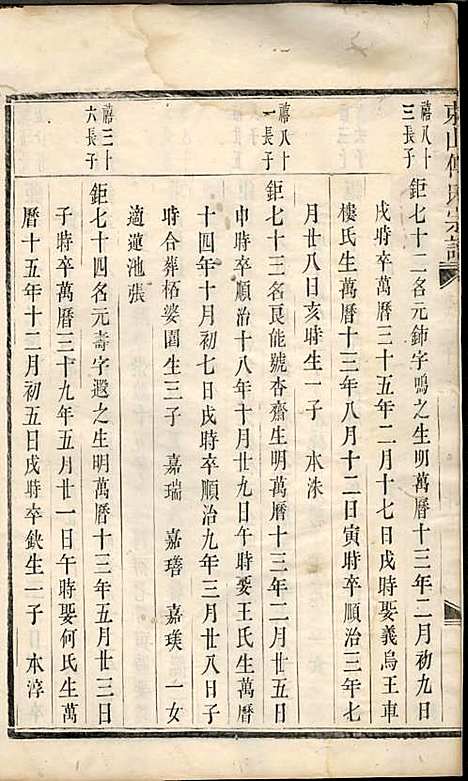 禧八十三長子
鉅七十二名元鈰字鳴之生明萬曆十三年二月初九日
戌時卒萬曆三十五年二月十七日戌時娶義烏王車
樓氏生萬曆十三年八月十二日寅時卒順治三年七
月廿八日亥時生一子 本洙
禧八十一長子
鉅七十三名良能號杏齋生明萬曆十三年二月廿五日
申時卒順治十八年十月廿九日午時娶王氏生萬曆
十四年十月初七日戌時卒順治九年三月廿八日子
時合葬柘婆園生三子 嘉瑞 嘉璔 嘉璞 一女
適蓮池張
禧三十六長子
鉅七十四名元壽字遐之生明萬曆十三年五月廿三日
子時卒萬曆三十九年五月廿一日午時娶何氏生萬
曆十五年十二月初五日戌時卒缺生一子 本淳